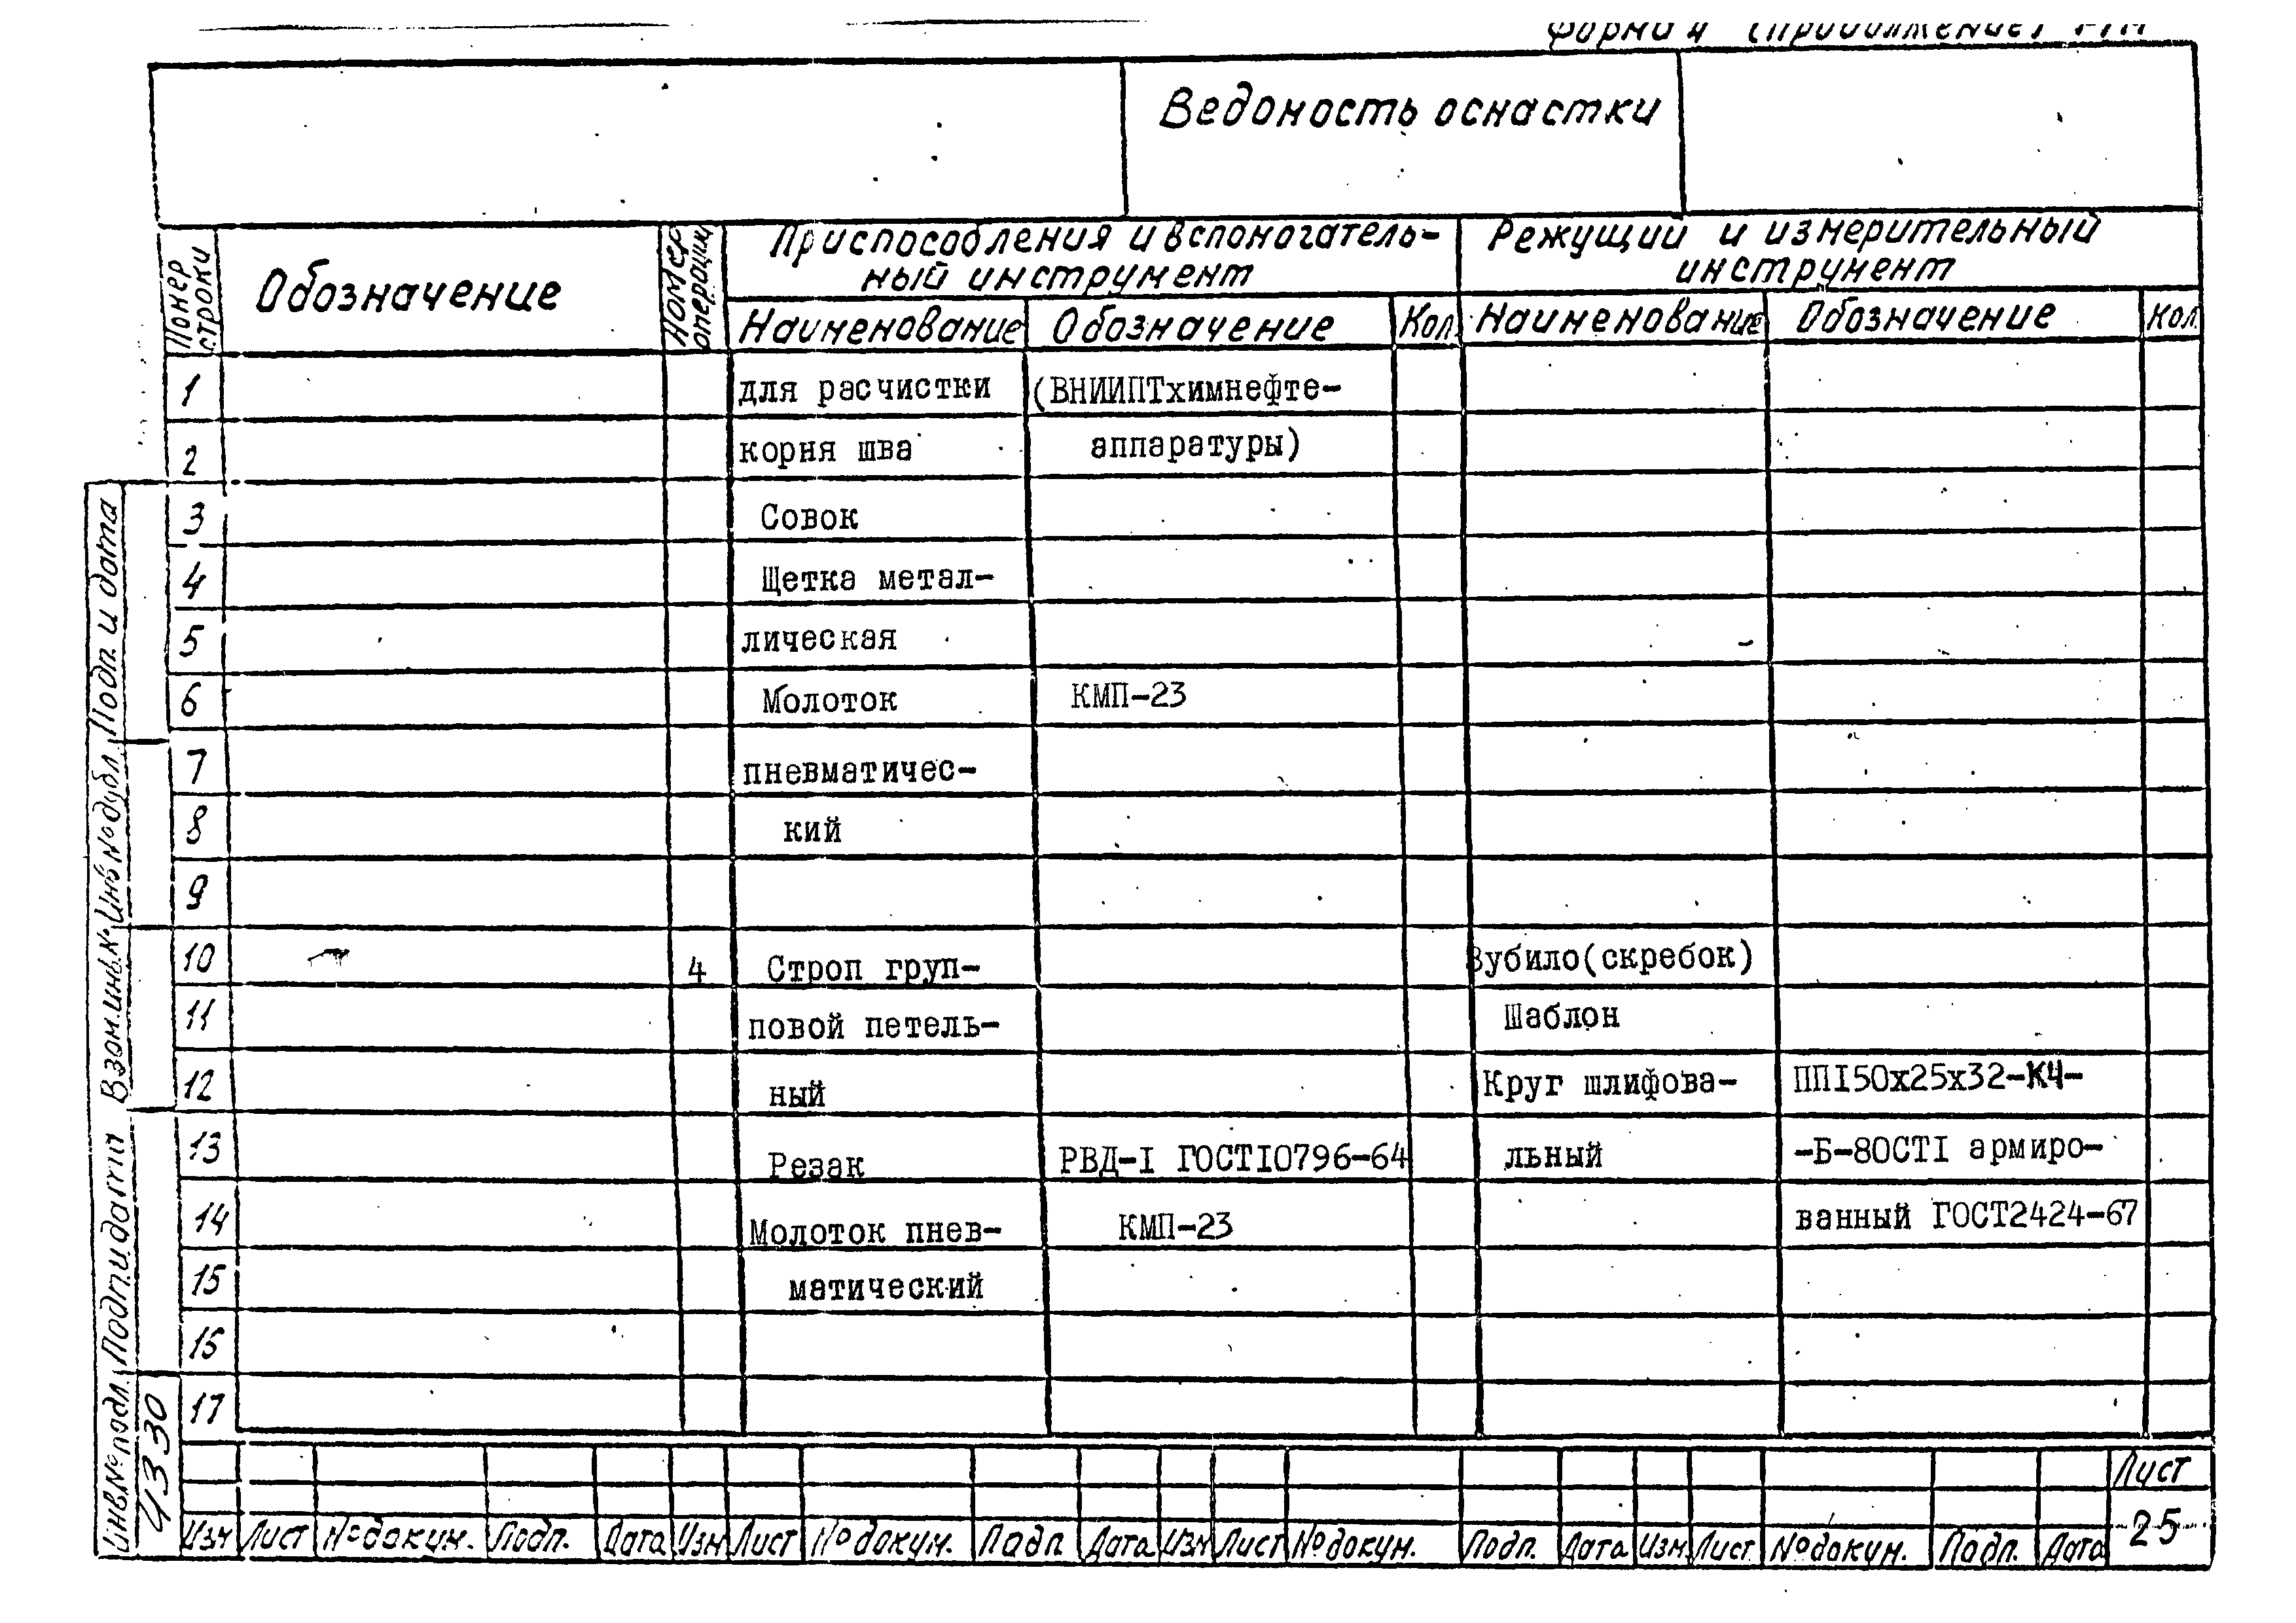 Форма 4 (продолжение) РТМ
Ведомость оснастки
Номер строки
Обозначение
Номер операции
Приспособления и вспомогатель-
ный инструмент
Режущий и измерительный
инструмент
Наименование Обозначение Кол. Наименование Обозначение Кол.
1 для расчистки (ВНИИПТхимнефте-
2 корня шва аппаратуры)
3 Совок
4 Щетка метал-
5 лическая
6 Молоток КМП-23
7 пневматичес-
8 кий
9
10 4 Строп груп- Зубило(скребок)
11 повой петель- Шаблон
12 ный Круг шлифова- ПП150х25х32-КЧ-
13 Резак РВД-I ГОСТ10796-64 льный -Б-80СТI армиро-
14 Молоток пнев- КМП-23 ванный ГОСТ2424-67
15 матический
16
17
Подп. и дата
Инв № дубл.
Взам. инв. №
Подп. и дата
Инв № подл.
4330
Лист
25
Изм Лист № докум. Подп. Дата Изм Лист № докум. Подп Дата Изм Лист № докум. Подп. Дата Изм. Лист № докум. Подп. Дата